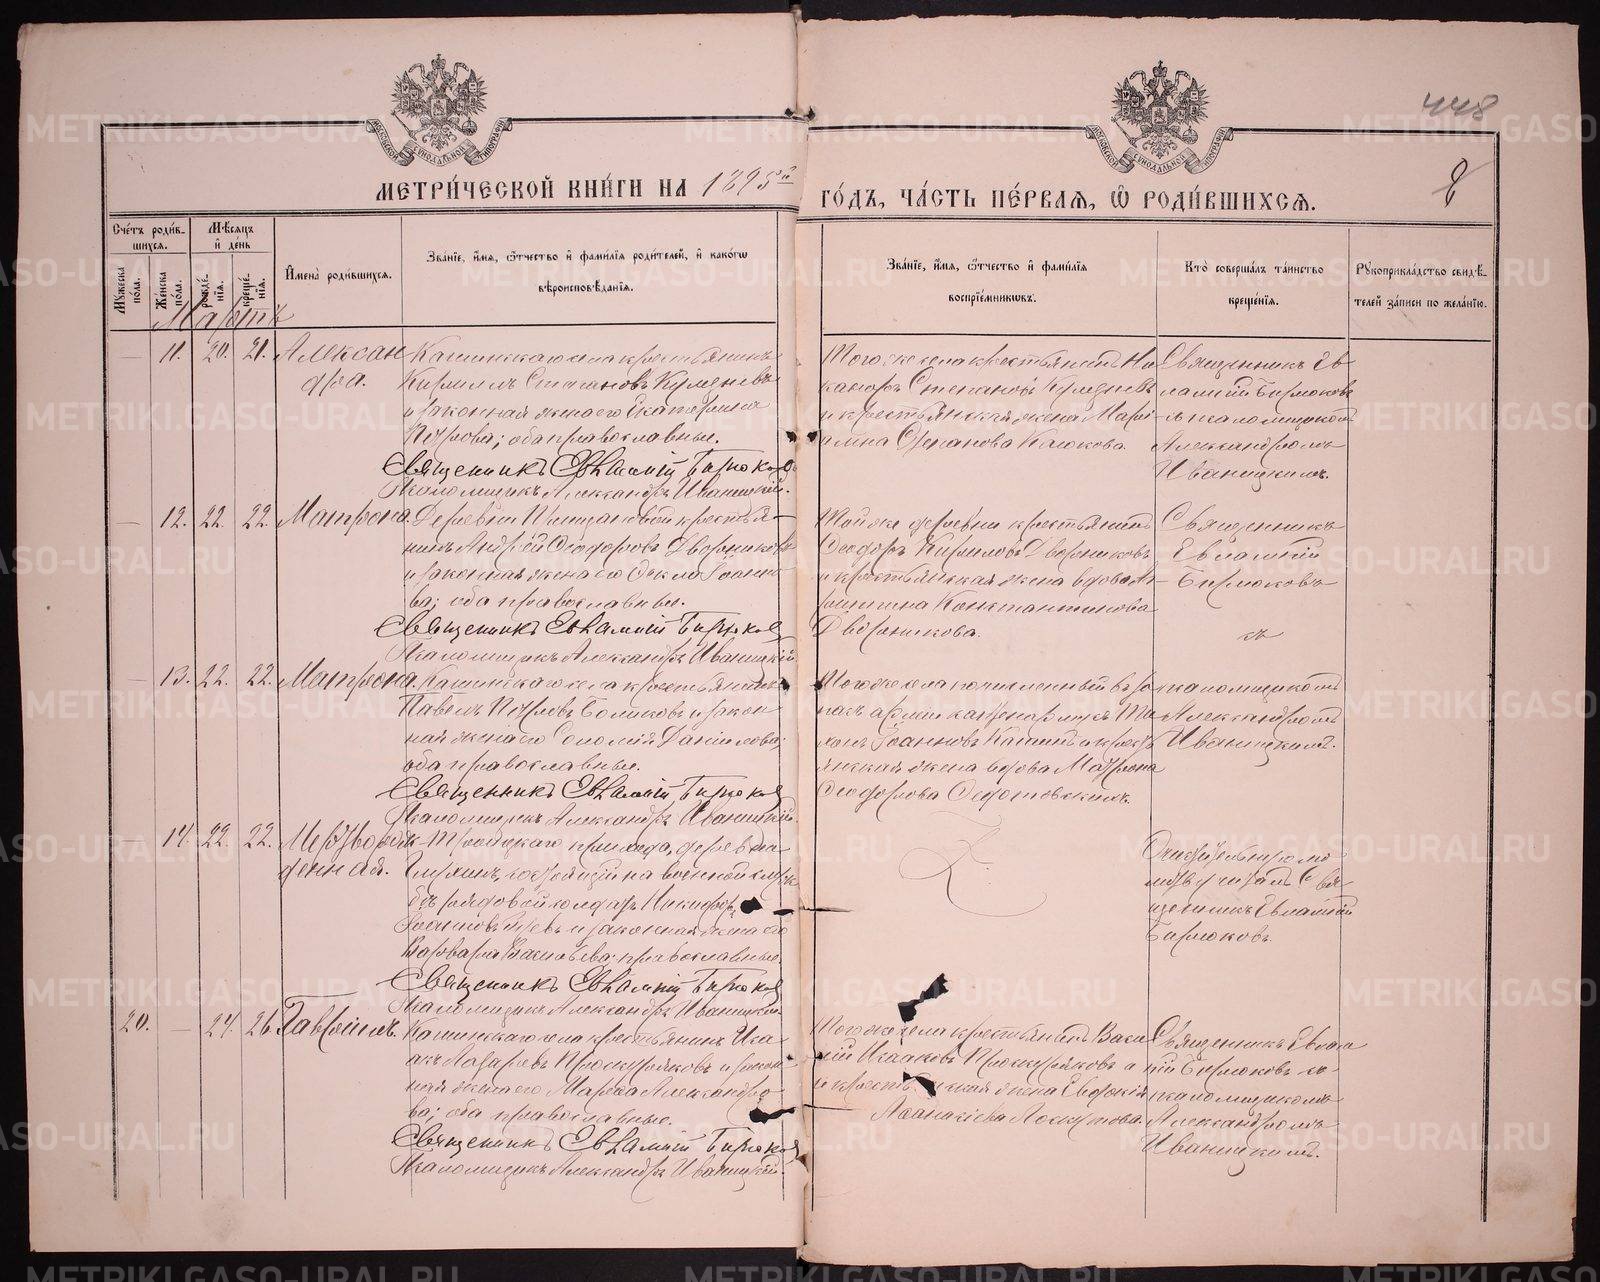 448
8
МОСКОВСКОЙ СѴНОДАЛЬНОЙ ТИПОГРАФІИ
МОСКОВСКОЙ СѴНОДАЛЬНОЙ ТИПОГРАФІИ
МЕТРИ́ЧЕСКОЙ КНИ́ГИ НА 1895й ГО́ДЪ, ЧА́СТЬ ПЕ́РВАѦ, Ѡ РОДИ́ВШИХСѦ.
Сче́тъ роди́вшихсѧ.
Мꙋ́жеска по́ла.
Же́нска по́ла.
Мѣ́сѧцъ и де́нь
рожде́нїѧ.
креще́нїѧ.
И҆мена̀ роди́вшихсѧ.
Зва́нїе, и҆́мѧ, ѻ҆́тчество и҆ фами́лїѧ роди́телей, и҆ како́гѡ
вѣроисповѣ́данїѧ.
Зва́нїе, и҆́мѧ, ѻ҆́тчество и҆ фами́лїѧ
воспрїе́мникѡвъ.
Кто̀ соверша́лъ та́инство
креще́нїѧ.
Рꙋкоприкла́дство свидѣ́телей за́писи по жела́нїю.
Мартъ
— 11. 20. 21. Александра.
Кашинскаго села крестьянинъ
Кириллъ Стефановъ
и законная жена его Екатерина
Петрова; оба православные.
Священникъ Евлампій Бирюков
Псаломщикъ Александръ Иваницкій.
Того же села крестьянинъ Никаноръ Степановъ
и крестьянская жена Маріамна Степанова Клюкова.
Священникъ Евлампій Бирюковъ
съ псаломщикомъ
Александромъ
Иваницкимъ.
— 12. 22. 22. Матрона.
Деревни крестьянинъ Андрей Ѳеодоровъ Дворниковъ
и законная жена его Ѳекла Іоаннова; оба православные.
Священникъ Евлампій Бирюков
Псаломщикъ Александръ Иваницкій
Той же деревни крестьянинъ
Ѳеодоръ Кириловъ Дворниковъ
и крестьянская жена вдова
Константинова
Дворникова.
Священникъ
Евлампій
Бирюковъ
съ
— 13. 22. 22. Матрона.
Кашинскаго села крестьянинъ
Павелъ Петровъ и законная жена его Соломія Даніилова;
оба православные.
Священникъ Евлампій Бирюков
Псаломщикъ Александръ Иваницкій.
Того же села
Іоанновъ Кашинъ и крестьянская жена вдова Матрона
Ѳеодорова
псаломщикомъ
Александромъ
Иваницкимъ.
— 14. 22. 22. Мертворожденная.
Троицкаго прихода, деревни
состоящій на военной службѣ рядовой солдатъ Никифоръ
Іоанновъ и законная жена его
Варвара Васильева; православные
Священникъ Евлампій Бирюков
Псаломщикъ Александръ Иваницкій.
Очистительную молитву читалъ Священникъ Евлампій
Бирюковъ.
20. — 24. 26. Гавріилъ.
Кашинскаго села крестьянинъ Исаакъ Лазаревъ Проскуряковъ и законная жена его Марѳа Александрова; оба православные.
Священникъ Евлампій Бирюков
Псаломщикъ Александръ Иваницкій.
Того же села крестьянинъ Василій Исааковъ Проскуряковъ
и жена Евдокія
Аѳанасіева Лоскутова.
Священникъ Евлампій Бирюковъ съ
псаломщикомъ
Александромъ
Иваницкимъ.
METRIKI.GASO-URAL.RU